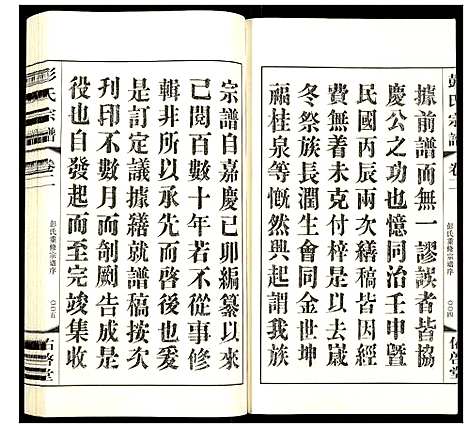 彭氏宗譜
卷一
彭氏重修宗譜序
〇〇四
佑啓堂
據前譜而無一謬誤者皆協
慶公之功也憶同治壬申暨
民國丙辰兩次繕稿皆因經
費無着未克付梓本年去歲
冬祭族長潤生會同金世坤
福桂泉等慨然興起謂我族
宗譜自嘉慶己卯編纂以來
已閱百數十年若不從事修
輯非所以承先而啓後也爰
是訂定議據繕就譜稿按次
刊印不數月而剞劂告成是
役也自發起而至完竣集收
彭氏宗譜
卷一
彭氏重修宗譜序
〇〇五
佑啓堂